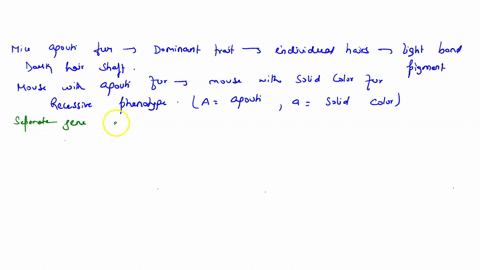 Mice apouti fur → Dominant trait → individual hairs → light band
Dark hair shaft. pigment
Mouse with apouti fur → mouse with solid color fur
Recessive phenotype. (A = apouti, a = solid color)
Separate gene